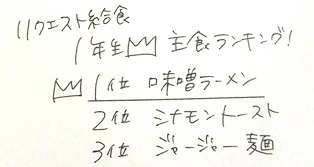 リクエスト給食
1年生 主食ランキング!
1位 味噌ラーメン
2位 シナモントースト
3位 ジャージャー麺